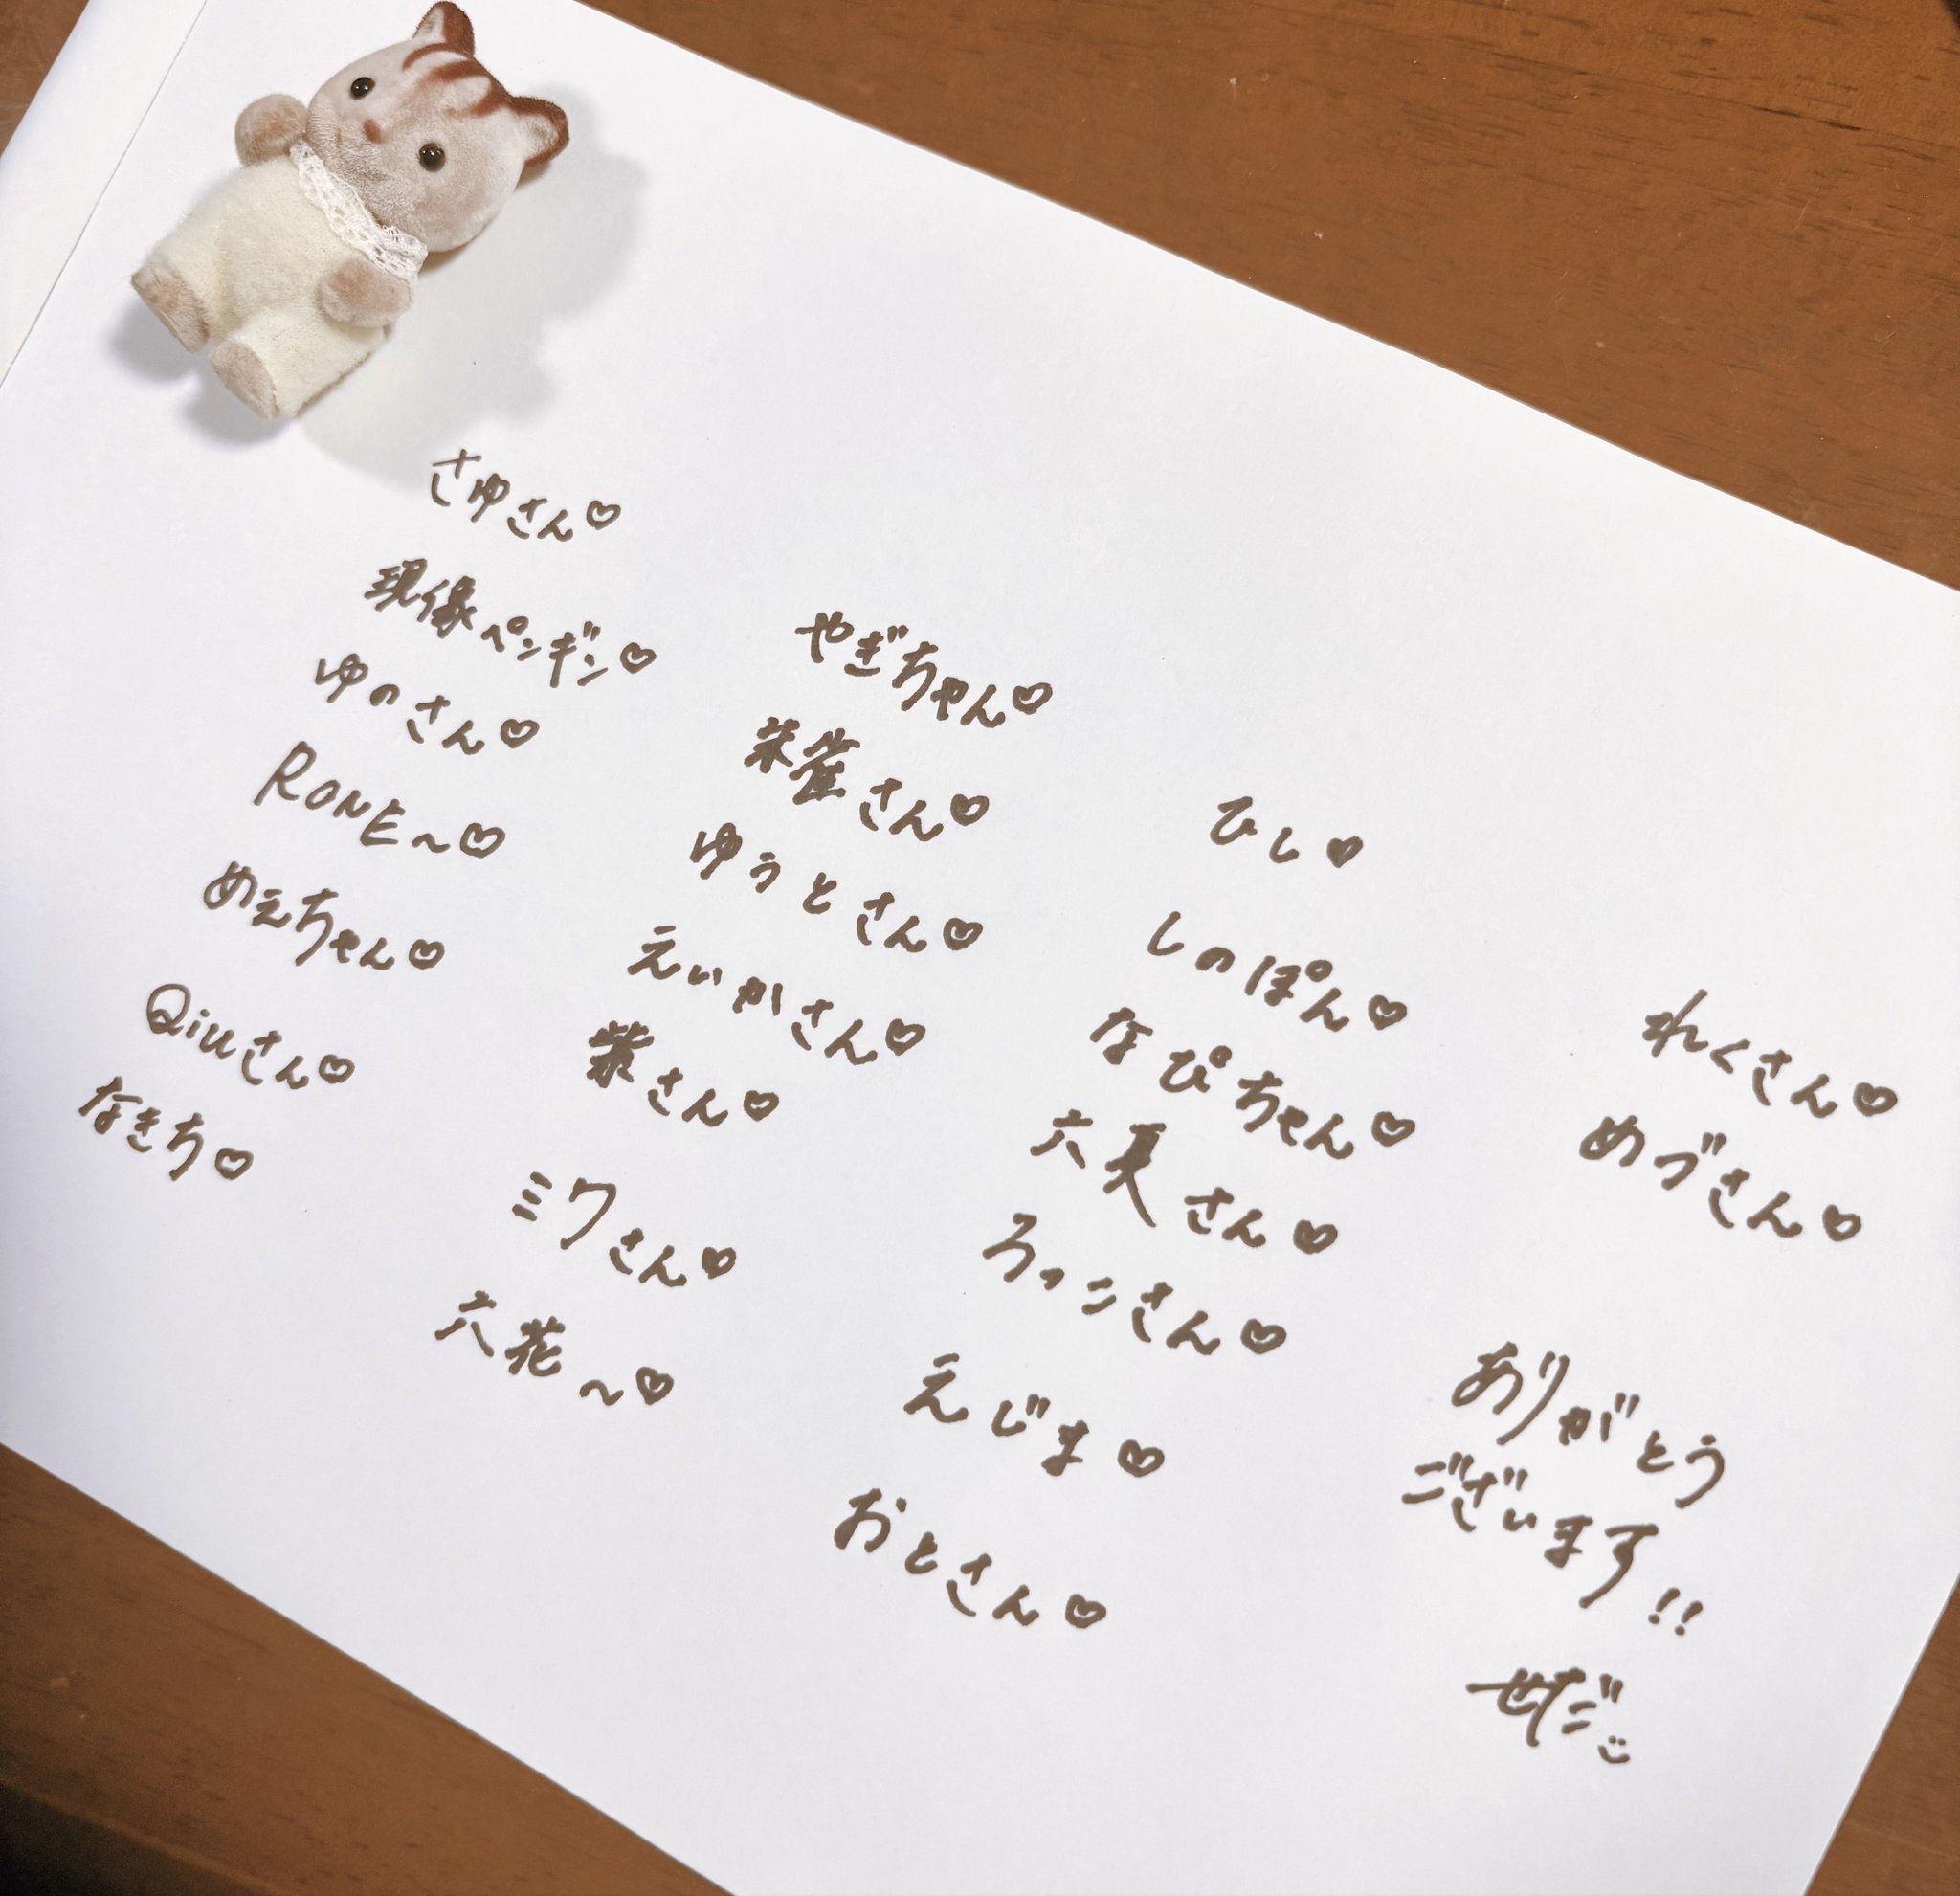 さゆさん♡
現像ペンギン♡
ゆのさん♡
RONE〜♡
めぇちゃん♡
Qiuさん♡
なきち♡
やぎちゃん♡
朱雀さん♡
ゆぅとさん♡
えいかさん♡
紫さん♡
ミワさん♡
六花〜♡
ひし♡
しのぽん♡
なぴちゃん♡
六夏さん♡
ろっこさん♡
えじま♡
おとさん♡
れくさん♡
めづさん♡
ありがとう
ございます!!